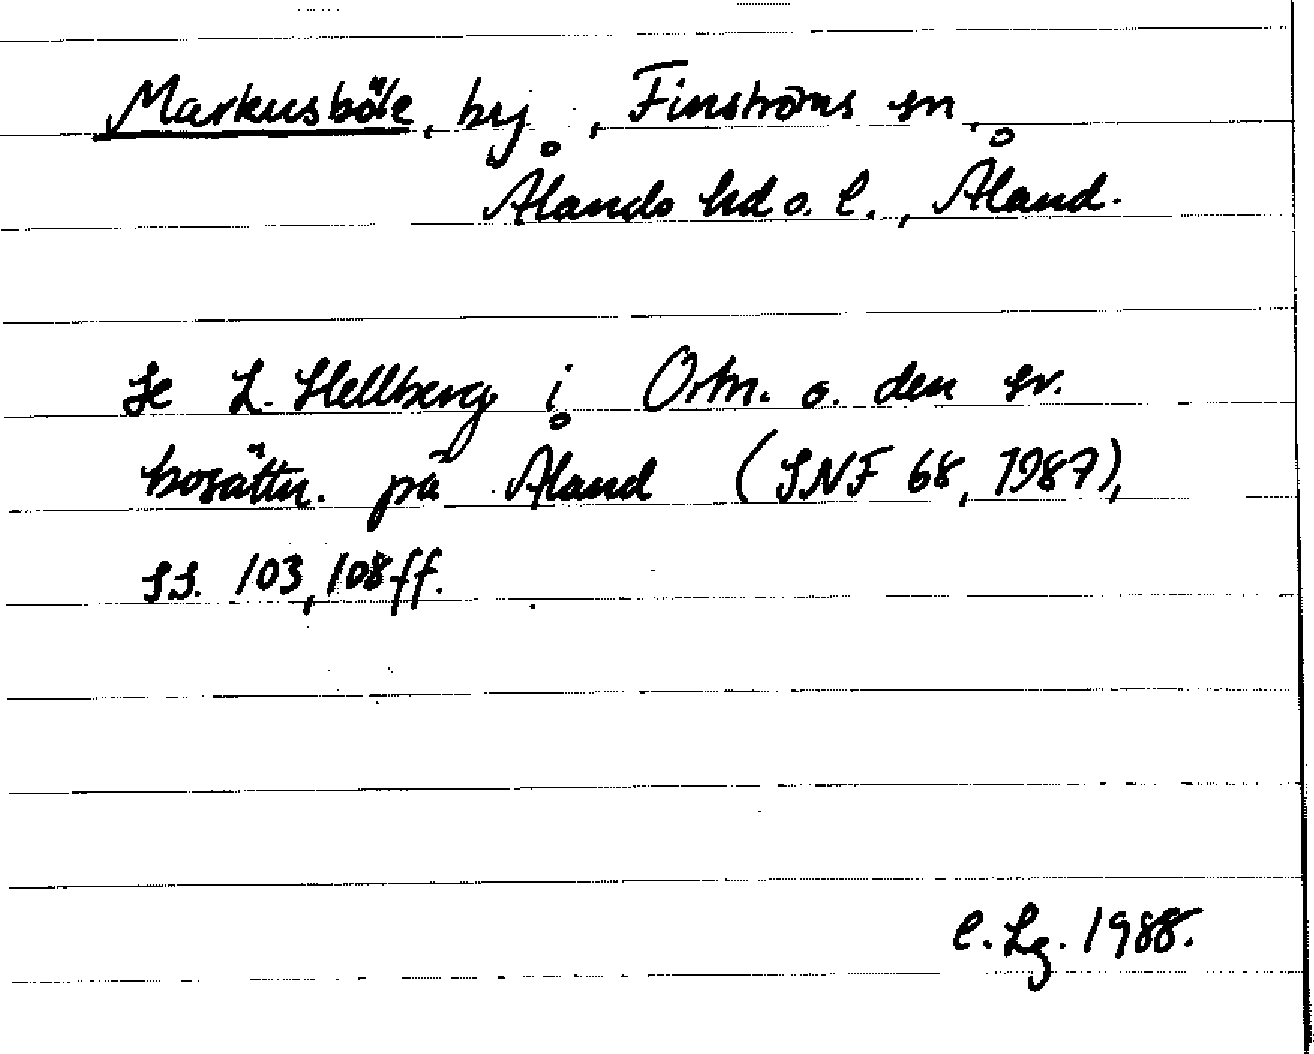 Markusböle, by, Finströms sn,
Ålands hd o. l., Åland.
Se L. Hellberg i Ortn. o. den sv.
bosättn. på Åland (SNF 68, 1987),
ss. 103, 108 ff.
C. Lg. 1988.